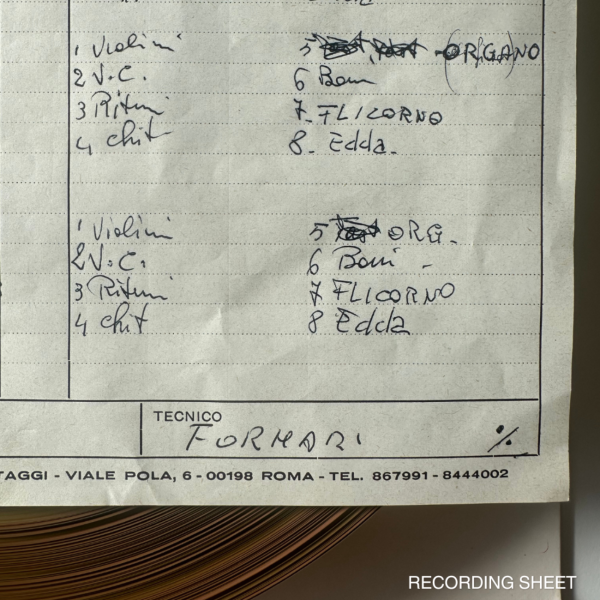 1 Violini 5 ORGANO
2 V.C. 6 Boni
3 Ritmi 7. FLICORNO
4 chit 8. Edda.
1 Violini 5 ORG.
2 V.C. 6 Boni -
3 Ritmi 7 FLICORNO
4 chit 8 Edda
TECNICO
FORNARI ./.
TAGGI - VIALE POLA, 6 - 00198 ROMA - TEL. 867991 - 8444002
RECORDING SHEET